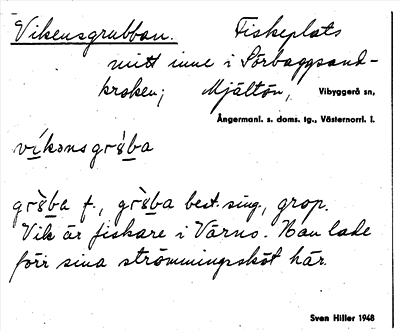 Vikensgrubban. Fiskeplats
mitt inne i Sörbaggsand-
kroken; Mjältön, Vibyggerå sn,
Ångermanl. s. doms. tg., Västernorrl. l.
f., best. sing., grop.
Vik är fiskare i Värns. Han lade
förr sina strömmingsköt här.
Sven Hiller 1948